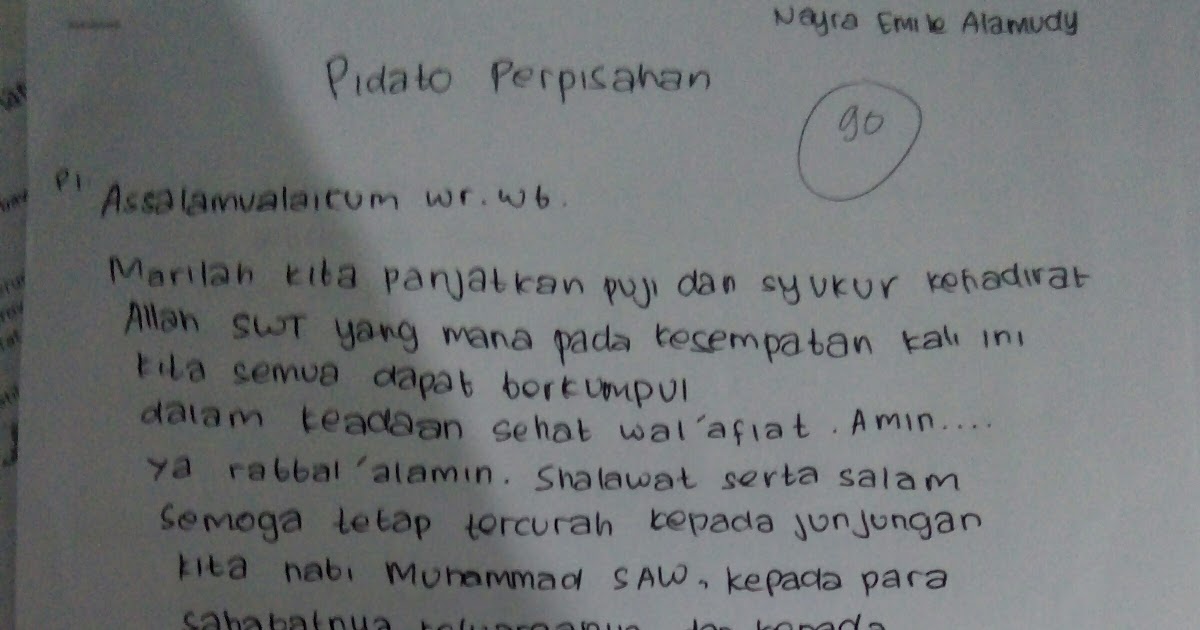 Nayra Emile Alamudy
Pidato Perpisahan
90
P1 Assalamualaikum wr. wb.
Marilah kita panjatkan puji dan syukur kehadirat
Allah SWT yang mana pada kesempatan kali ini
kita semua dapat berkumpul
dalam keadaan sehat wal'afiat. Amin....
ya rabbal 'alamin. Shalawat serta salam
semoga tetap tercurah kepada junjungan
kita nabi Muhammad SAW, kepada para
sahabatnya keluarganya dan kepada